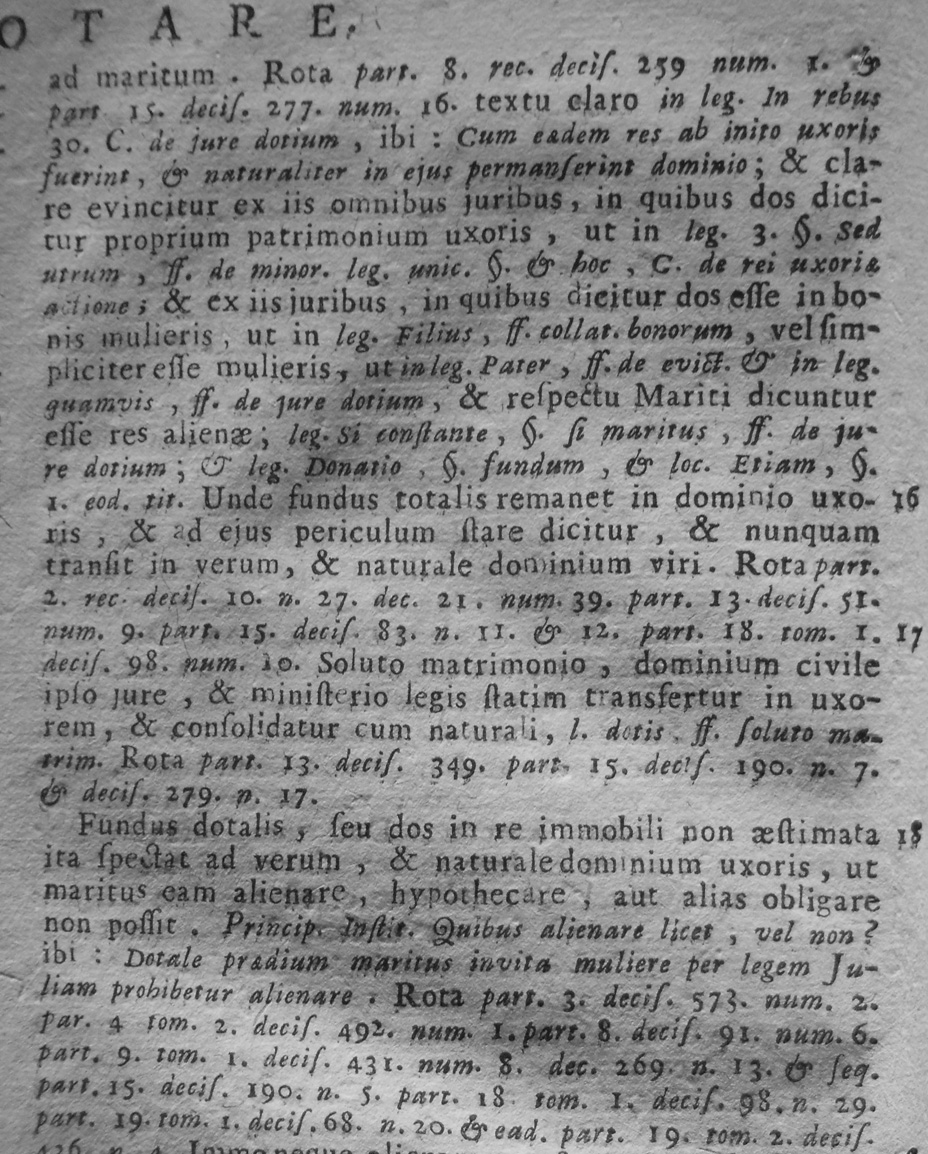 O T A R E.
ad maritum. Rota part. 8. rec. deciſ. 259 num. 1. &
part 15. deciſ. 277. num. 16. textu claro in leg. In rebus
30. C. de jure dotium, ibi: Cum eædem res ab inito uxoris
fuerint, & naturaliter in ejus permanſerint dominio; & cla-
re evincitur ex iis omnibus juribus, in quibus dos dici-
tur proprium patrimonium uxoris, ut in leg. 3. §. Sed
utrum, ff. de minor. leg. unic. §. & hoc, C. de rei uxoriæ
actione; & ex iis juribus, in quibus dicitur dos eſſe in bo-
nis mulieris, ut in leg. Filius, ff. collat. bonorum, vel ſim-
pliciter eſſe mulieris, ut in leg. Pater, ff. de evict. & in leg.
quamvis, ff. de jure dotium, & reſpectu Mariti dicuntur
eſſe res alienæ; leg. Si conſtante, §. ſi maritus, ff. de ju-
re dotium; & leg. Donatio, §. fundum, & loc. Etiam, §.
1. eod. tit. Unde fundus totalis remanet in dominio uxo- 16
ris, & ad ejus periculum ſtare dicitur, & nunquam
tranſit in verum, & naturale dominium viri. Rota part.
2. rec. deciſ. 10. n. 27. dec. 21. num. 39. part. 13. deciſ. 51.
num. 9. part. 15. deciſ. 83. n. 11. & 12. part. 18. tom. 1. 17
deciſ. 98. num. 10. Soluto matrimonio, dominium civile
ipſo jure, & miniſterio legis ſtatim transfertur in uxo-
rem, & conſolidatur cum naturali, l. dotis. ff. ſoluto ma-
trim. Rota part. 13. deciſ. 349. part. 15. deciſ. 190. n. 7.
& deciſ. 279. n. 17.
Fundus dotalis, ſeu dos in re immobili non æſtimata 18
ita ſpectat ad verum, & naturale dominium uxoris, ut
maritus eam alienare, hypothecare, aut alias obligare
non poſſit. Princip. Inſtit. Quibus alienare licet, vel non?
ibi: Dotale prædium maritus invita muliere per legem Ju-
liam prohibetur alienare. Rota part. 3. deciſ. 573. num. 2.
par. 4 tom. 2. deciſ. 492. num. 1. part. 8. deciſ. 91. num. 6.
part. 9. tom. 1. deciſ. 431. num. 8. dec. 269. n. 13. & ſeq.
part. 15. deciſ. 190. n. 5. part. 18 tom. 1. deciſ. 98. n. 29.
part. 19. tom. 1. deciſ. 68. n. 20. & ead. part. 19. tom. 2. deciſ.